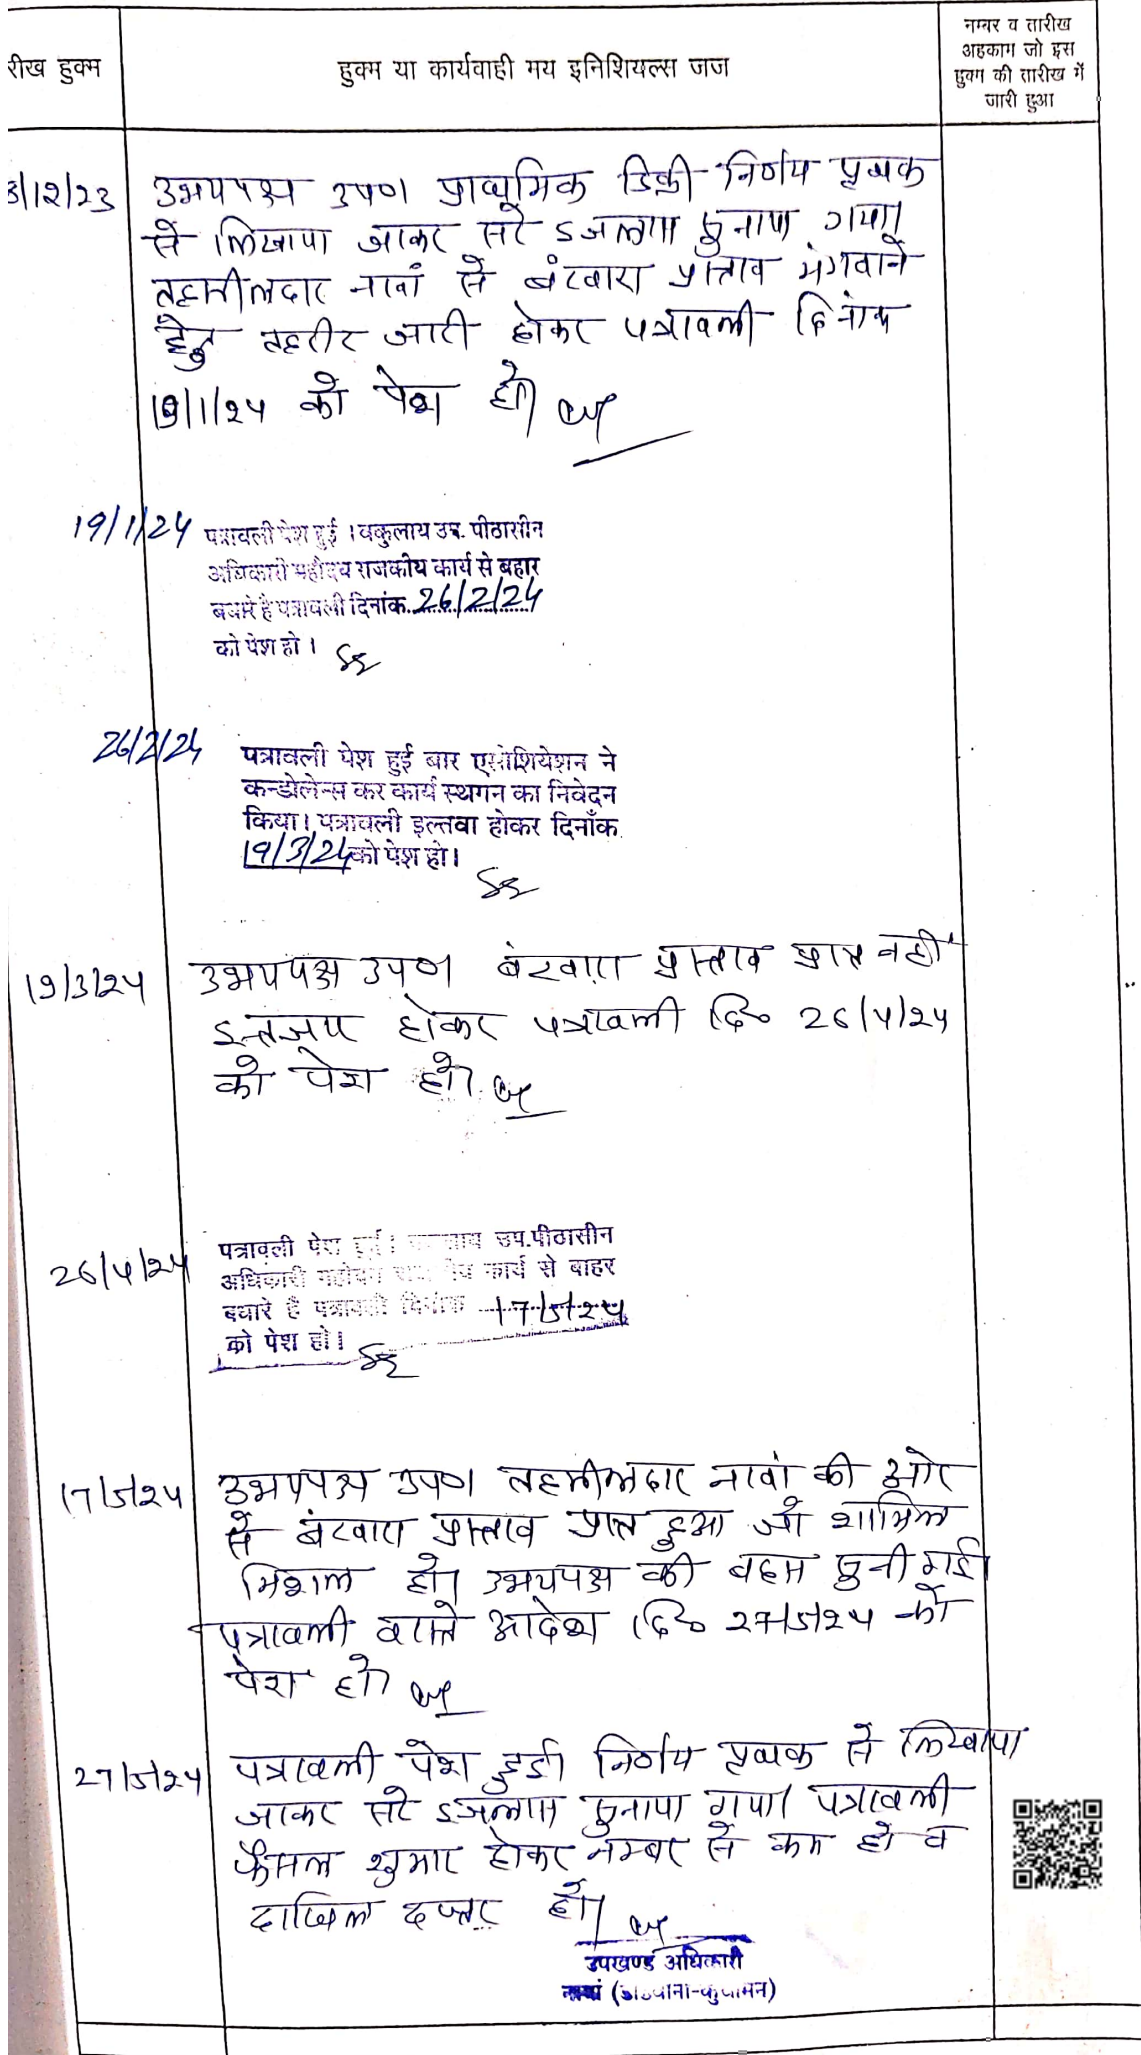 रीख हुक्म
हुक्म या कार्यवाही मय इनिशियल्स जज
नम्बर व तारीख
अहकाम जो इस
हुक्म की तारीख में
जारी हुआ
3/12/23 उभयपक्ष उप० प्राथमिक डिक्री निर्णय पृथक
से लिखाया जाकर सरे इजलास सुनाया गया।
तहसीलदार नावां से बंटवारा प्रस्ताव मंगवाने
हेतु तहरीर जारी होकर पत्रावली दिनांक
19/1/24 को पेश हो।
19/1/24 पत्रावली पेश हुई । वकुलाय उप. पीठासीन
अधिकारी महोदय राजकीय कार्य से बहार
बधारे है पत्रावली दिनांक 26/2/24
को पेश हो ।
26/2/24 पत्रावली पेश हुई बार एसोशियेशन ने
कन्डोलेन्स कर कार्य स्थगन का निवेदन
किया। पत्रावली इल्तवा होकर दिनाँक
19/3/24 को पेश हो।
19/3/24 उभयपक्ष उप० बंटवारा प्रस्ताव प्राप्त नहीं
इन्तजार होकर पत्रावली दि० 26/4/24
को पेश हो।
26/4/24 पत्रावली पेश हुई। उप.पीठासीन
अधिकारी महोदय कार्य से बाहर
बधारे है पत्रावली दिनांक 17/5/24
को पेश हो।
17/5/24 उभयपक्ष उप० तहसीलदार नावां की ओर
से बंटवारा प्रस्ताव प्राप्त हुआ जो शामिल
मिशल हो। उभयपक्ष की बहस सुनी गई।
पत्रावली वास्ते आदेश दि० 27/5/24 को
पेश हो।
27/5/24 पत्रावली पेश हुई। निर्णय पृथक से लिखाया
जाकर सरे इजलास सुनाया गया। पत्रावली
फैसल शुमार होकर नम्बर से कम हो व
दाखिल दफ्तर हो।
उपखण्ड अधिकारी
नावां (डीडवाना-कुचामन)